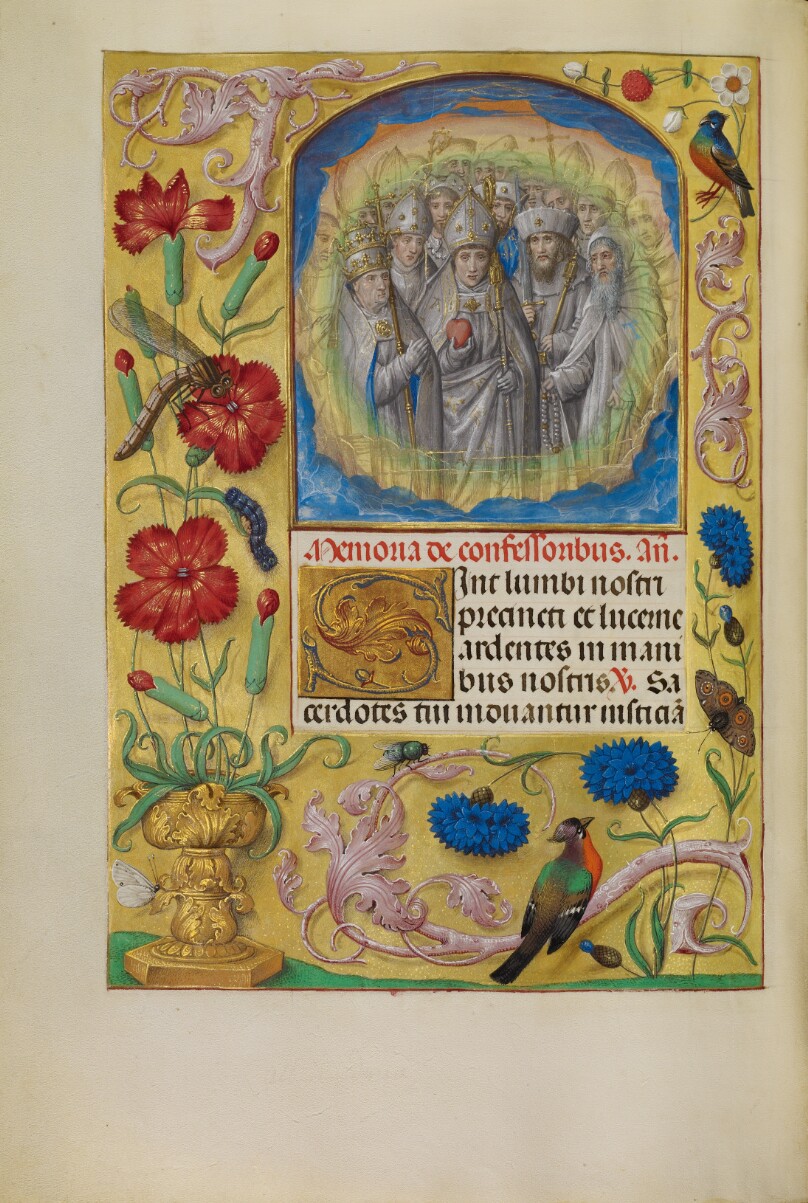 Memoria de confessoribus. An̄.
Sint lumbi nostri
precincti et lucerne
ardentes in mani
bus nostris. V. Sa
cerdotes tui induantur iusticiā